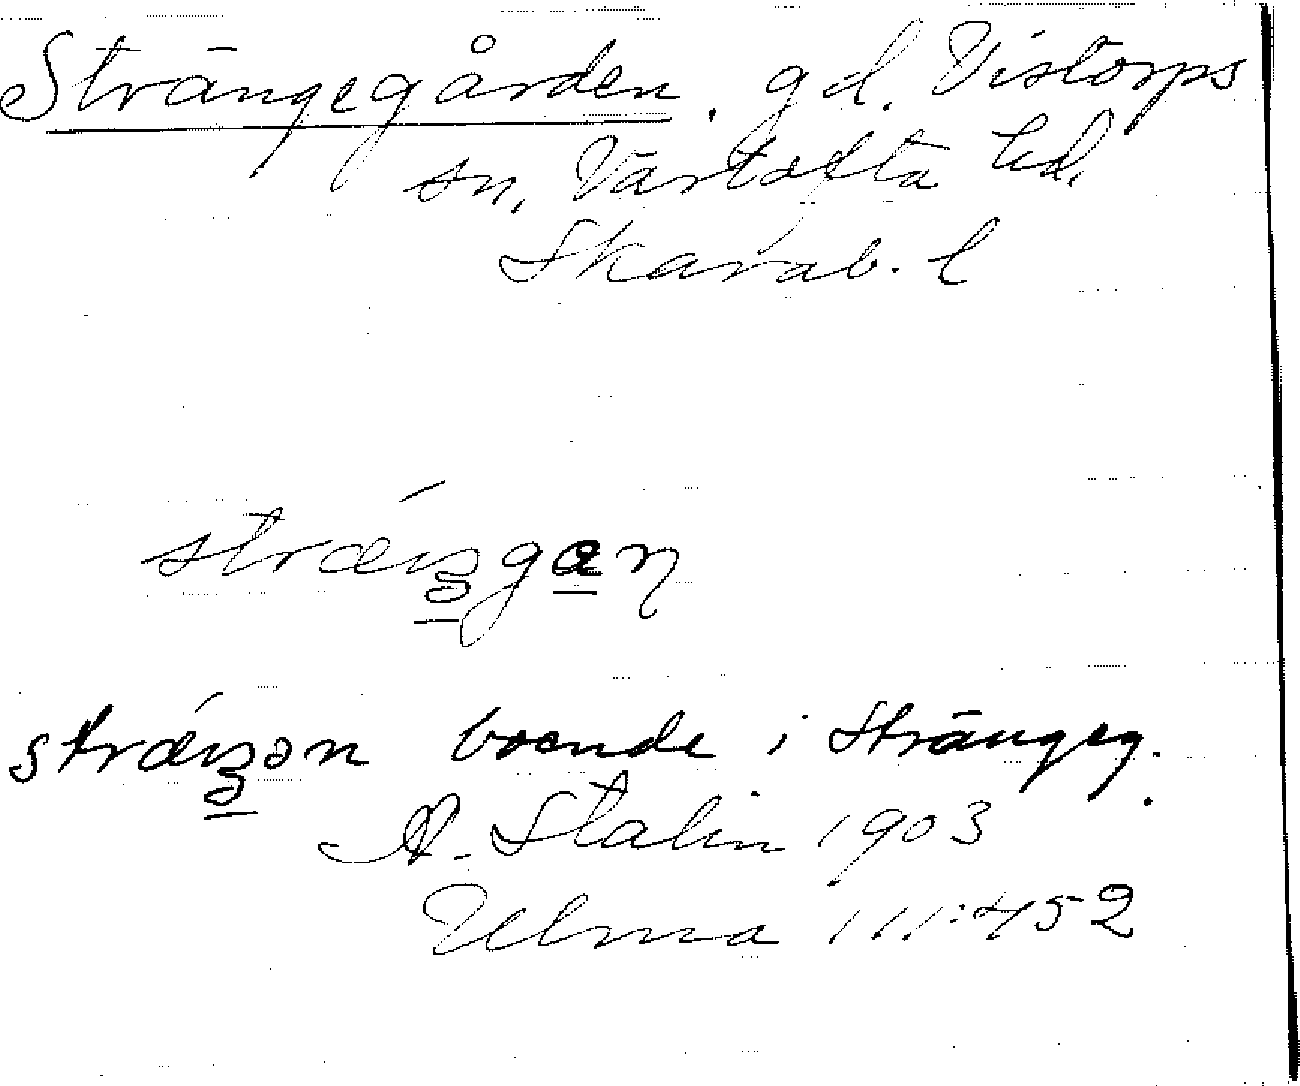 Strängegården. gd. Vistorps
sn, Vartofta hd.
Skarab. l
boende i Strängeg.
A. Stalin 1903
Ulma 111:452